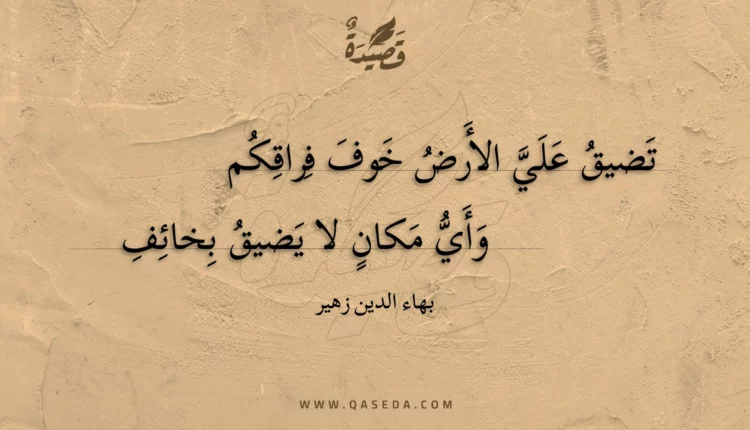 قَصِيدَةٌ
تَضيقُ عَلَيَّ الأَرضُ خَوفَ فِراقِكُم
وَأَيُّ مَكانٍ لا يَضيقُ بِخائِفِ
بهاء الدين زهير
WWW.QASEDA.COM